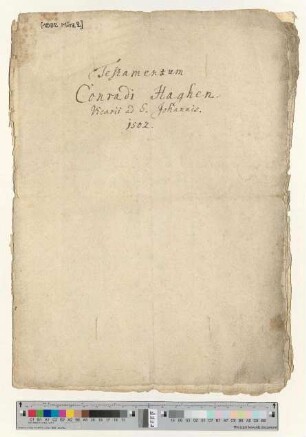 [1502 März 2]
Testamentum
Conradi Haghen
Vicarii ad S. Johannis.
1502.